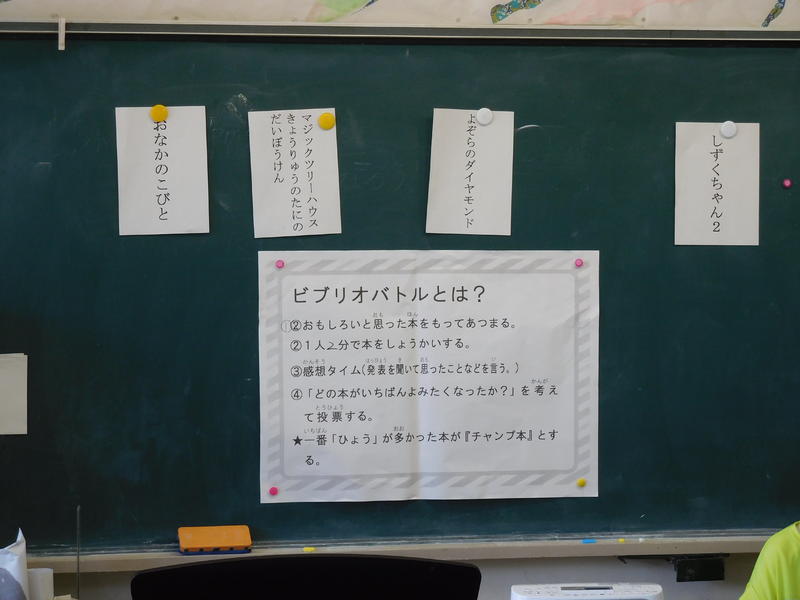 おなかのこびと
マジックツリーハウス
きょうりゅうのたにの
だいぼうけん
よぞらのダイヤモンド
しずくちゃん2
ビブリオバトルとは？
①②おもしろいと思った本をもってあつまる。
②1人2分で本をしょうかいする。
③感想タイム(発表を聞いて思ったことなどを言う。)
④「どの本がいちばんよみたくなったか？」を考え
て投票する。
★一番「ひょう」が多かった本が『チャンプ本』とす
る。